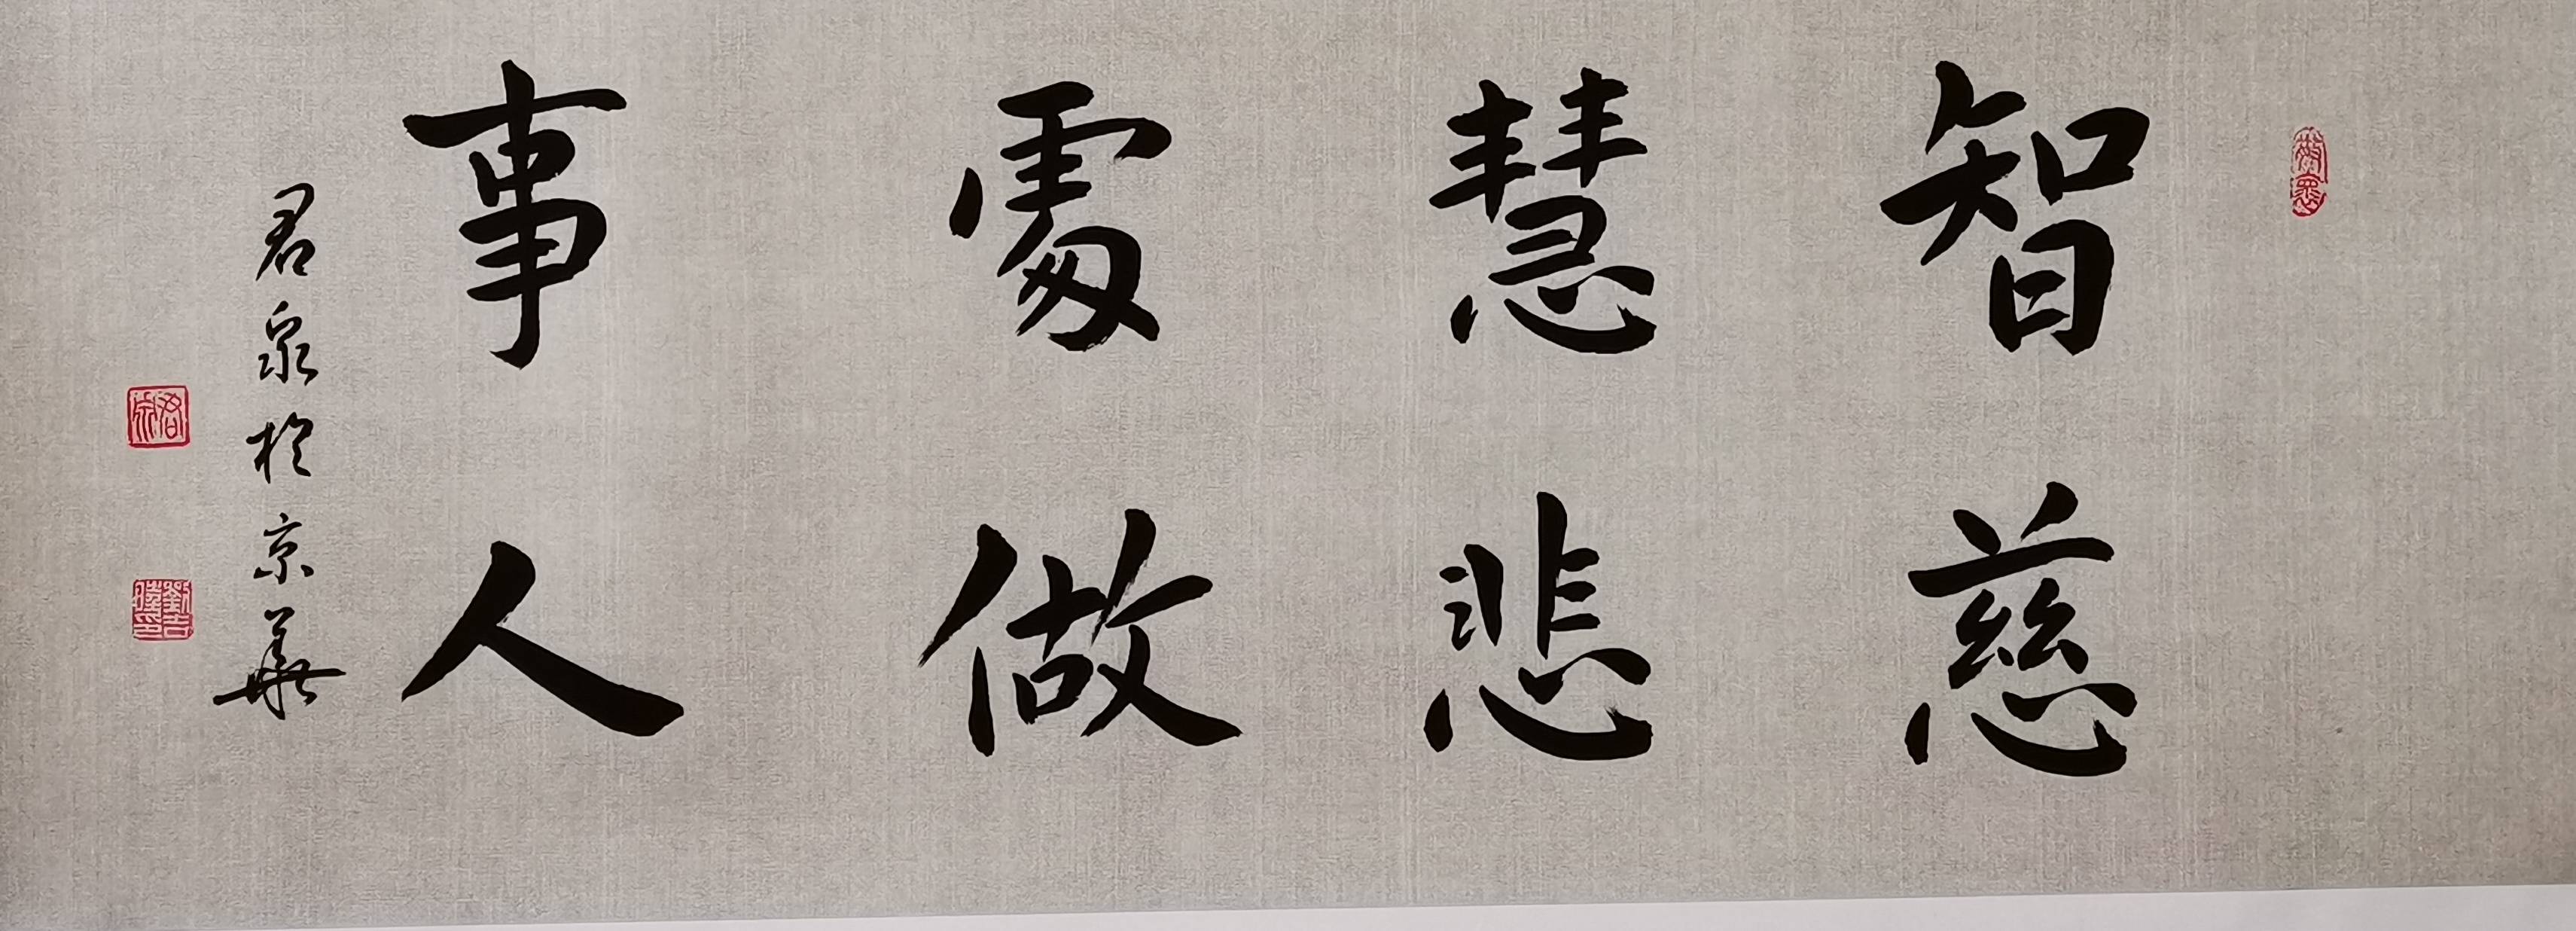 智慧處事
慈悲做人
君泉於京華
君泉